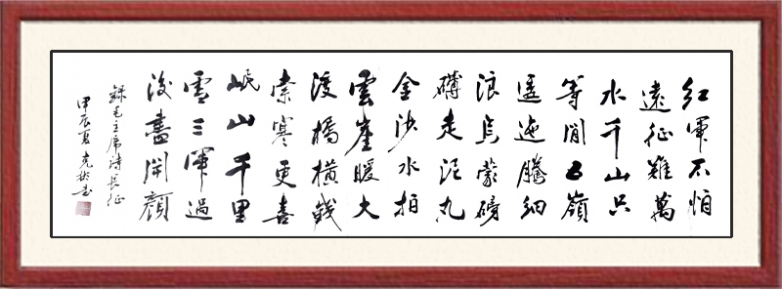 紅軍不怕
遠征難萬
水千山只
等閒五嶺
逶迤騰細
浪烏蒙磅
礴走泥丸
金沙水拍
雲崖暖大
渡橋橫鐵
索寒更喜
岷山千里
雪三軍過
後盡開顏
錄毛主席詩長征
甲辰夏克彬书